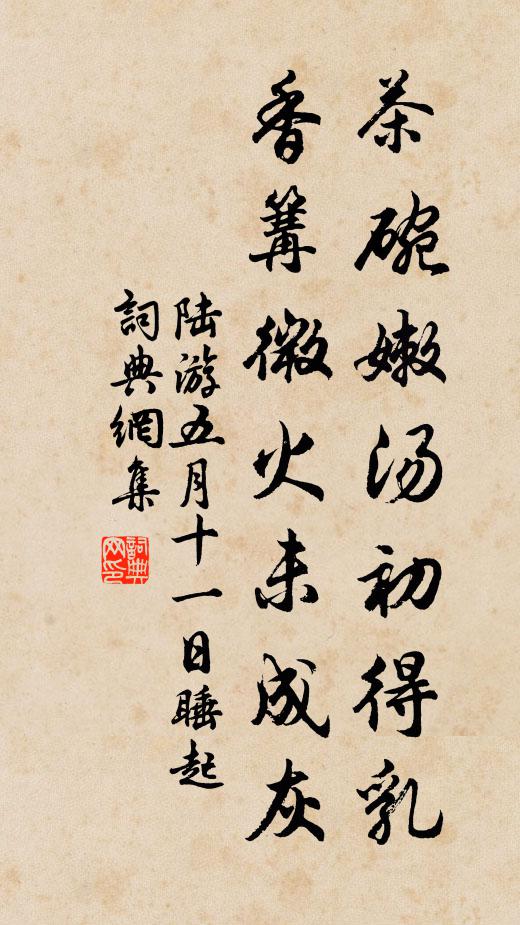 茶碗嫩汤初得乳
香篝微火未成灰
陆游五月十一日睡起
詞典網集
詞典网印